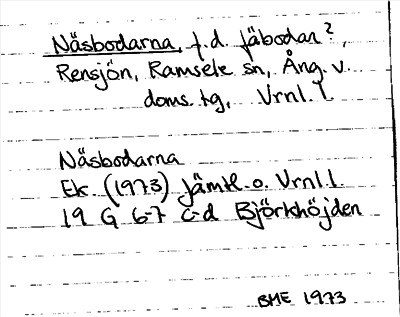 Näsbodarna, f.d. fäbodar?,
Rensjön, Ramsele sn, Ång. v.
doms. tg, Vrnl. l.
Näsbodarna
Ek (1973) Jämtl. o. Vrnl. l.
19 G 6-7 c-d Björkhöjden
BME 1973